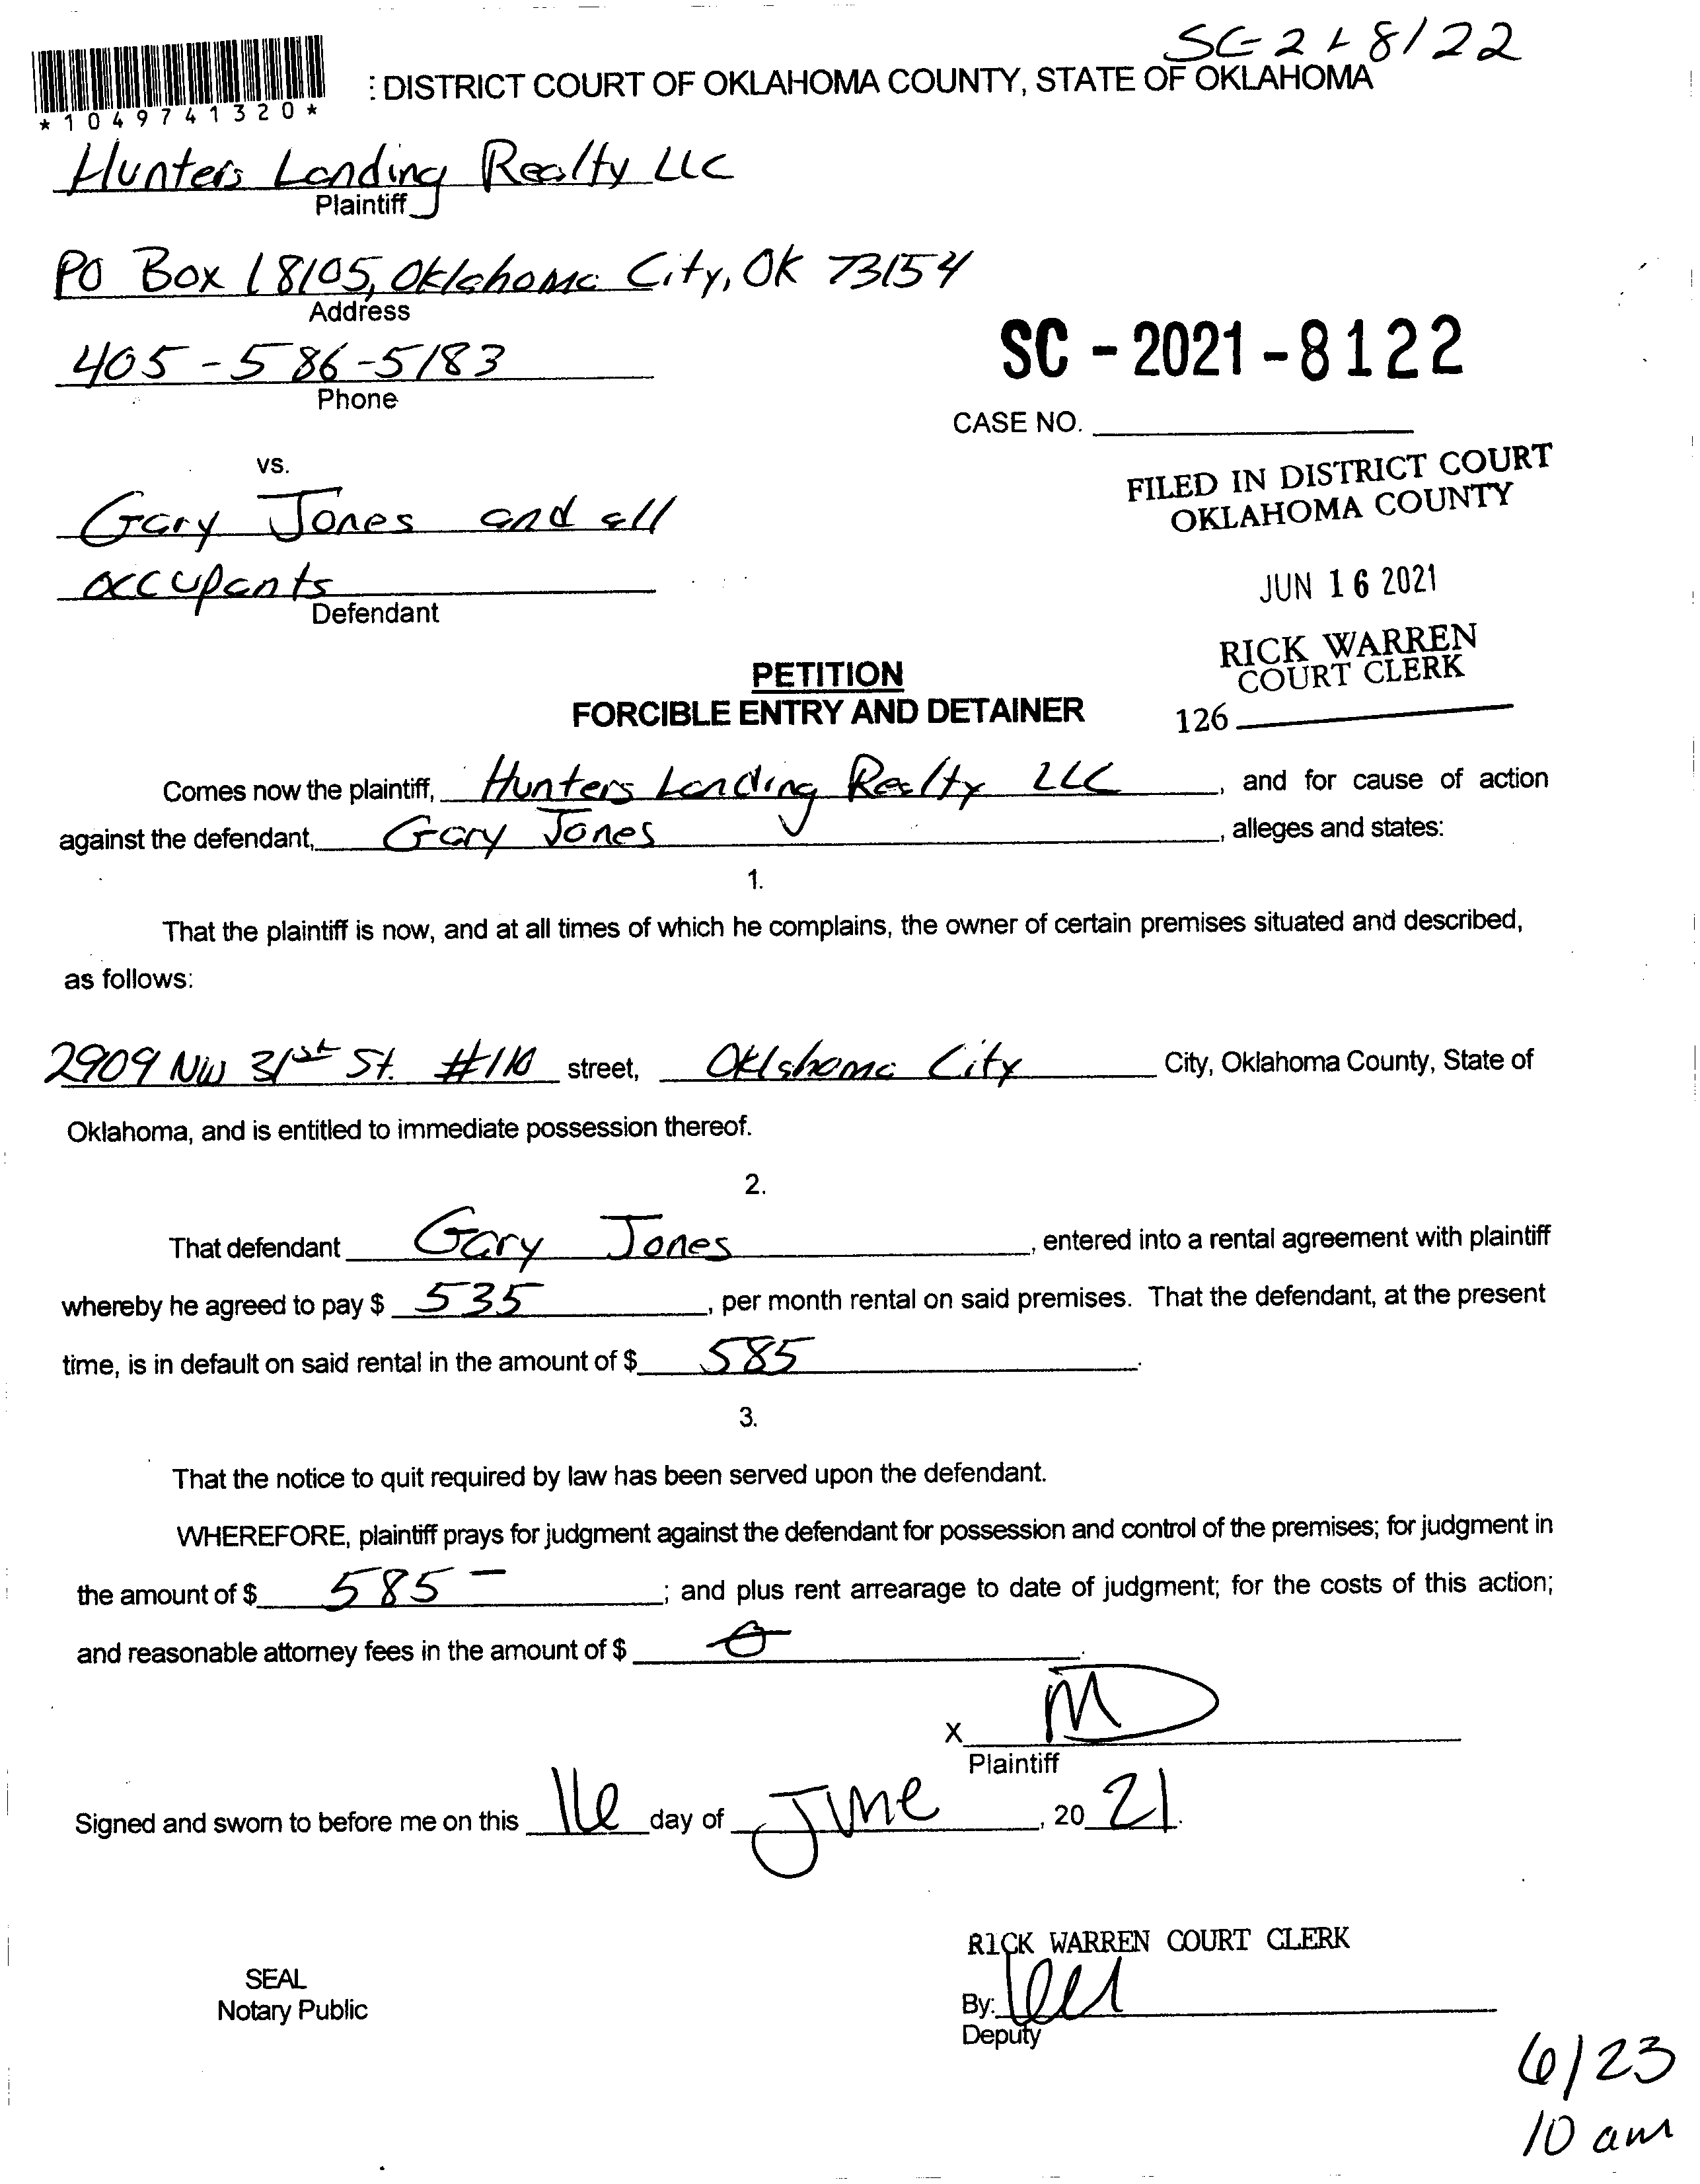 SC-21-8122
*1049741320*
: DISTRICT COURT OF OKLAHOMA COUNTY, STATE OF OKLAHOMA
Hunters Landing Realty LLC
Plaintiff
PO Box 18105, Oklahoma City, OK 73154
Address
405-586-5183
Phone
SC - 2021 - 8122
CASE NO.
vs.
Gary Jones and all
occupants
Defendant
FILED IN DISTRICT COURT
OKLAHOMA COUNTY
JUN 16 2021
RICK WARREN
COURT CLERK
126
PETITION
FORCIBLE ENTRY AND DETAINER
Comes now the plaintiff, Hunters Landing Realty LLC, and for cause of action
against the defendant, Gary Jones, alleges and states:
1.
That the plaintiff is now, and at all times of which he complains, the owner of certain premises situated and described,
as follows:
2909 NW 31st St. #110 street, Oklahoma City City, Oklahoma County, State of
Oklahoma, and is entitled to immediate possession thereof.
2.
That defendant Gary Jones, entered into a rental agreement with plaintiff
whereby he agreed to pay $ 535, per month rental on said premises. That the defendant, at the present
time, is in default on said rental in the amount of $ 585.
3.
That the notice to quit required by law has been served upon the defendant.
WHEREFORE, plaintiff prays for judgment against the defendant for possession and control of the premises; for judgment in
the amount of $ 585-; and plus rent arrearage to date of judgment; for the costs of this action;
and reasonable attorney fees in the amount of $ 0.
X
Plaintiff
Signed and sworn to before me on this 16 day of June, 20 21.
RICK WARREN COURT CLERK
SEAL
Notary Public
By:
Deputy
6/23
10 am